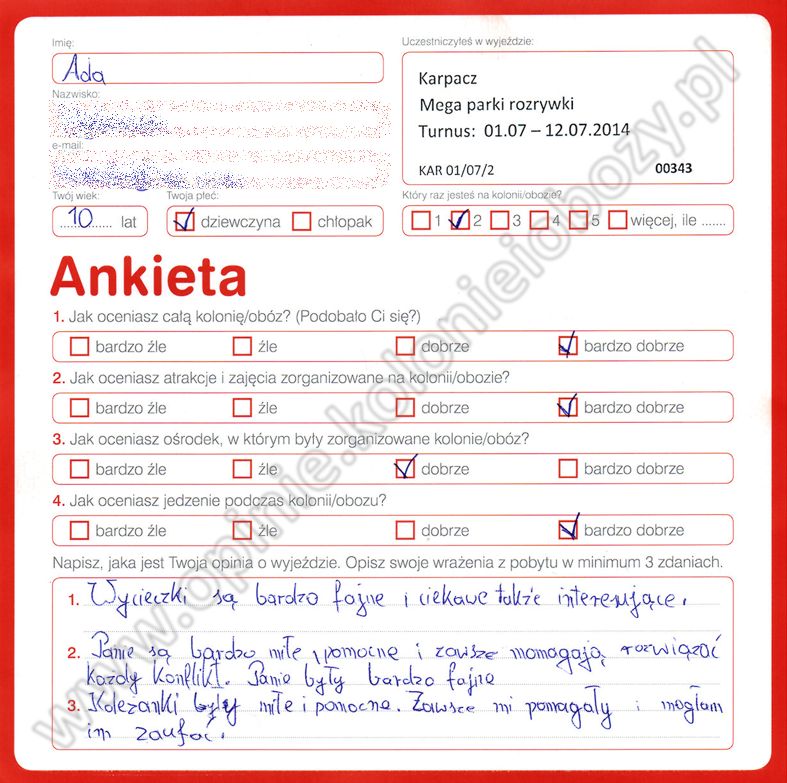 Imię:
Ada
Uczestniczyłeś w wyjeździe:
Karpacz
Mega parki rozrywki
Turnus: 01.07 – 12.07.2014
KAR 01/07/2 00343
Nazwisko:
e-mail:
Twój wiek: Twoja płeć: Który raz jesteś na kolonii/obozie?
10 lat dziewczyna chłopak 1 2 3 4 5 więcej, ile .......
Ankieta
1. Jak oceniasz całą kolonię/obóz? (Podobało Ci się?)
bardzo źle źle dobrze bardzo dobrze
2. Jak oceniasz atrakcje i zajęcia zorganizowane na kolonii/obozie?
bardzo źle źle dobrze bardzo dobrze
3. Jak oceniasz ośrodek, w którym były zorganizowane kolonie/obóz?
bardzo źle źle dobrze bardzo dobrze
4. Jak oceniasz jedzenie podczas kolonii/obozu?
bardzo źle źle dobrze bardzo dobrze
Napisz, jaka jest Twoja opinia o wyjeździe. Opisz swoje wrażenia z pobytu w minimum 3 zdaniach.
1. Wycieczki są bardzo fajne i ciekawe także interesujące.
2. Panie są bardzo miłe, pomocne i zawsze momagają rozwiązać
każdy konflikt. Panie były bardzo fajne
3. Koleżanki były miłe i pomocne. Zawsze mi pomagały i mogłam
im zaufać.
www.opinie.kolonieiobozy.pl